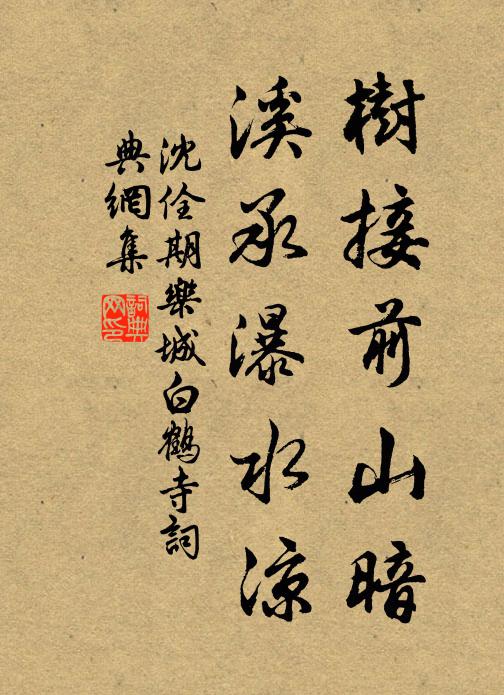 樹接前山暗
溪承瀑水涼
沈佺期樂城白鶴寺詞
典網集
詞典网印